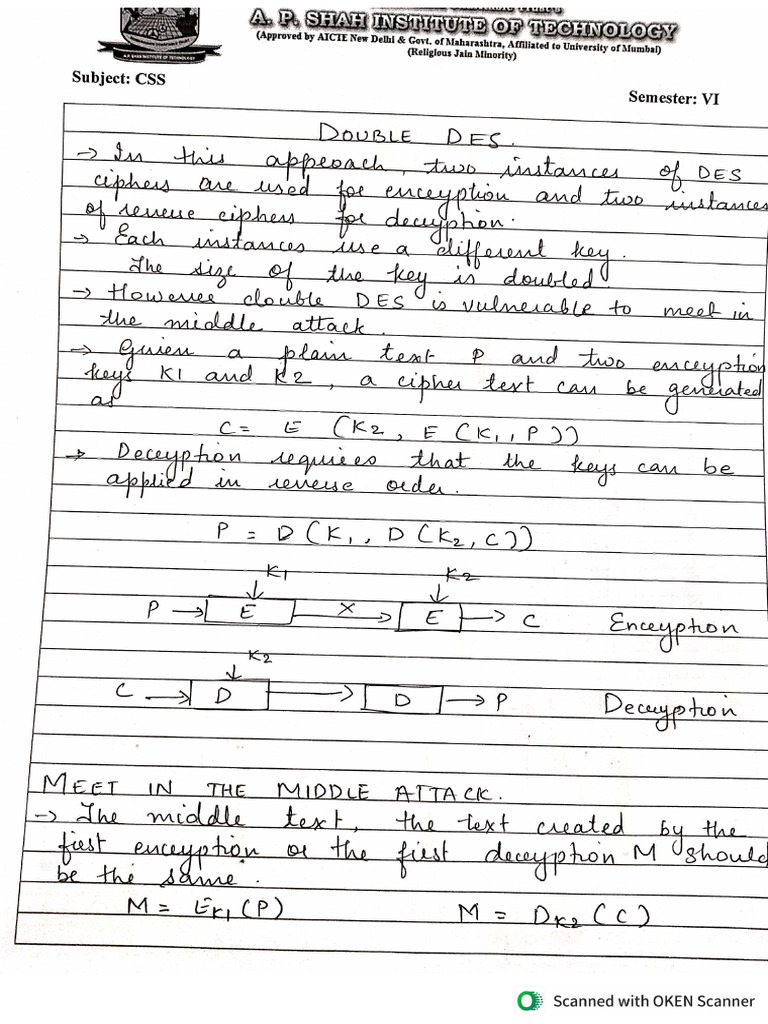 A. P. SHAH INSTITUTE OF TECHNOLOGY
(Approved by AICTE New Delhi & Govt. of Maharashtra, Affiliated to University of Mumbai)
(Religious Jain Minority)
Subject: CSS
Semester: VI
DOUBLE DES.
→ In this approach, two instances of DES
ciphers are used for encryption and two instances
of reverse ciphers for decryption.
→ Each instances use a different key.
The size of the key is doubled
→ However double DES is vulnerable to meet in
the middle attack.
→ Given a plain text P and two encryption
keys K1 and K2, a cipher text can be generated
as
C = E (K2, E (K1, P))
→ Decryption requires that the keys can be
applied in reverse order.
P = D (K1, D (K2, C))
K1 K2
P → E X → E → C Encryption
K2
C → D → D → P Decryption
MEET IN THE MIDDLE ATTACK.
→ The middle text, the text created by the
first encryption or the first decryption M should
be the same.
M = EK1 (P) M = DK2 (C)
Scanned with OKEN Scanner